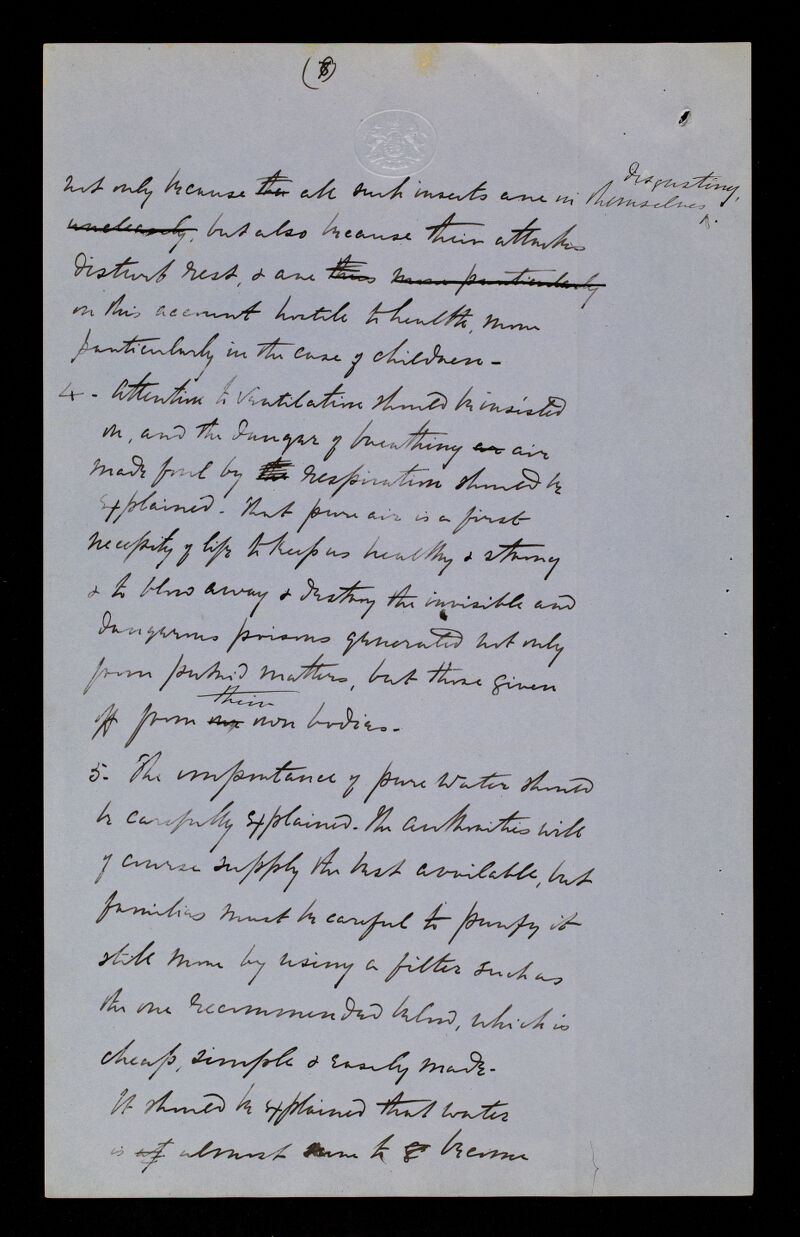 (8)
not only because ~~the~~ all such insects are in themselves disgusting,
~~uncleanly~~, but also because their attacks
disturb rest, & are ~~thus~~ ~~more particularly~~
on this account hostile to health, more
particularly in the case of children -
4 - Attention to Ventilation should be insisted
on, and the danger of breathing ~~an~~ air
made foul by ~~the~~ respiration should be
explained - That pure air is a first
necessity of life to keep us healthy & strong
& to blow away & destroy the invisible and
dangerous poisons generated not only
from putrid matters, but those given
off from ~~our~~ their own bodies -
5 - The importance of pure water should
be carefully explained - The authorities will
of course supply the best available, but
families must be careful to purify it
still more by using a filter such as
the one recommended below, which is
cheap, simple & easily made -
It should be explained that water
is almost sure to become